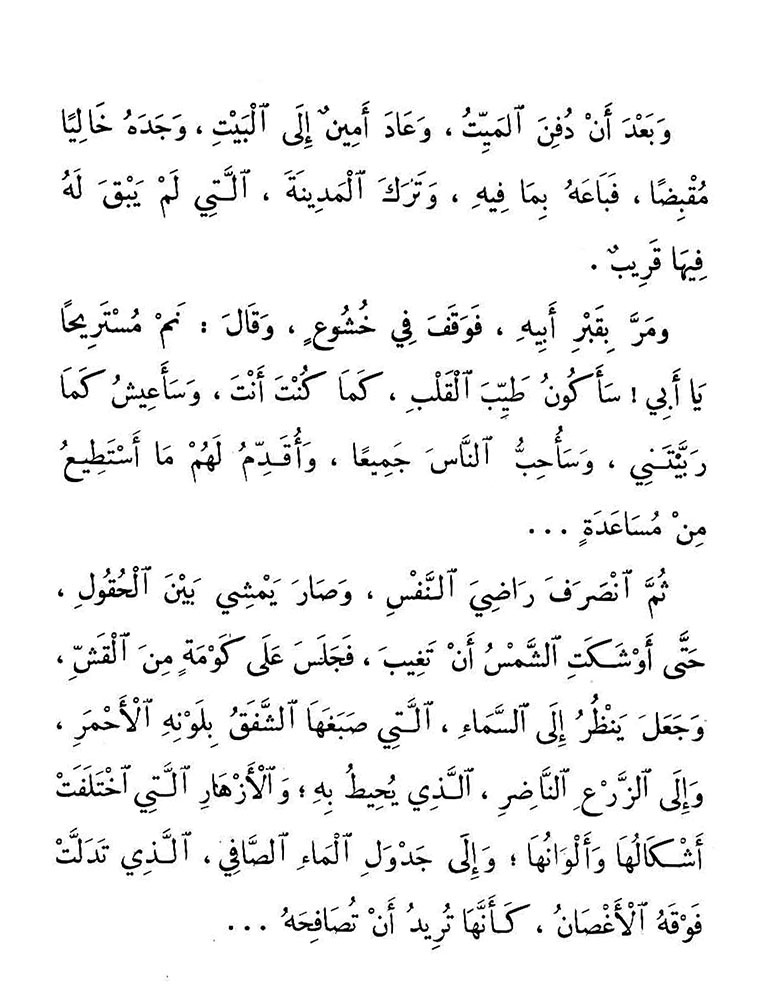 وَبَعْدَ أَنْ دُفِنَ ٱلمَيِّتُ ، وَعَادَ أَمِينٌ إِلَى ٱلْبَيْتِ ، وَجَدَهُ خَالِيًا
مُقْبِضًا ، فَبَاعَهُ بِمَا فِيهِ ، وَتَرَكَ ٱلْمَدِينَةَ ، ٱلَّتِي لَمْ يَبْقَ لَهُ
فِيهَا قَرِيبٌ .
ومَرَّ بِقَبْرِ أَبِيهِ ، فَوَقَفَ فِي خُشُوعٍ ، وَقَالَ : نَمْ مُسْتَرِيحًا
يَا أَبِي ! سَأَكُونُ طَيِّبَ ٱلْقَلْبِ ، كَمَا كُنْتَ أَنْتَ ، وَسَأَعِيشُ كَمَا
رَبَّيْتَنِي ، وَسَأُحِبُّ ٱلنَّاسَ جَمِيعًا ، وَأُقَدِّمُ لَهُمْ مَا أَسْتَطِيعُ
مِنْ مُسَاعَدَةٍ ...
ثُمَّ ٱنْصَرَفَ رَاضِيَ ٱلنَّفْسِ ، وَصَارَ يَمْشِي بَيْنَ ٱلْحُقُولِ ،
حَتَّى أَوْشَكَتِ ٱلشَّمْسُ أَنْ تَغِيبَ ، فَجَلَسَ عَلَى كَوْمَةٍ مِنَ ٱلْقَشِّ ،
وَجَعَلَ يَنْظُرُ إِلَى ٱلسَّمَاءِ ، ٱلَّتِي صَبَغَهَا ٱلشَّفَقُ بِلَوْنِهِ ٱلْأَحْمَرِ ،
وَإِلَى ٱلزَّرْعِ ٱلنَّاضِرِ ، ٱلَّذِي يُحِيطُ بِهِ ؛ وَٱلْأَزْهَارِ ٱلَّتِي ٱخْتَلَفَتْ
أَشْكَالُهَا وَأَلْوَانُهَا ؛ وَإِلَى جَدْوَلِ ٱلْمَاءِ ٱلصَّافِي ، ٱلَّذِي تَدَلَّتْ
فَوْقَهُ ٱلْأَغْصَانُ ، كَأَنَّهَا تُرِيدُ أَنْ تُصَافِحَهُ ...